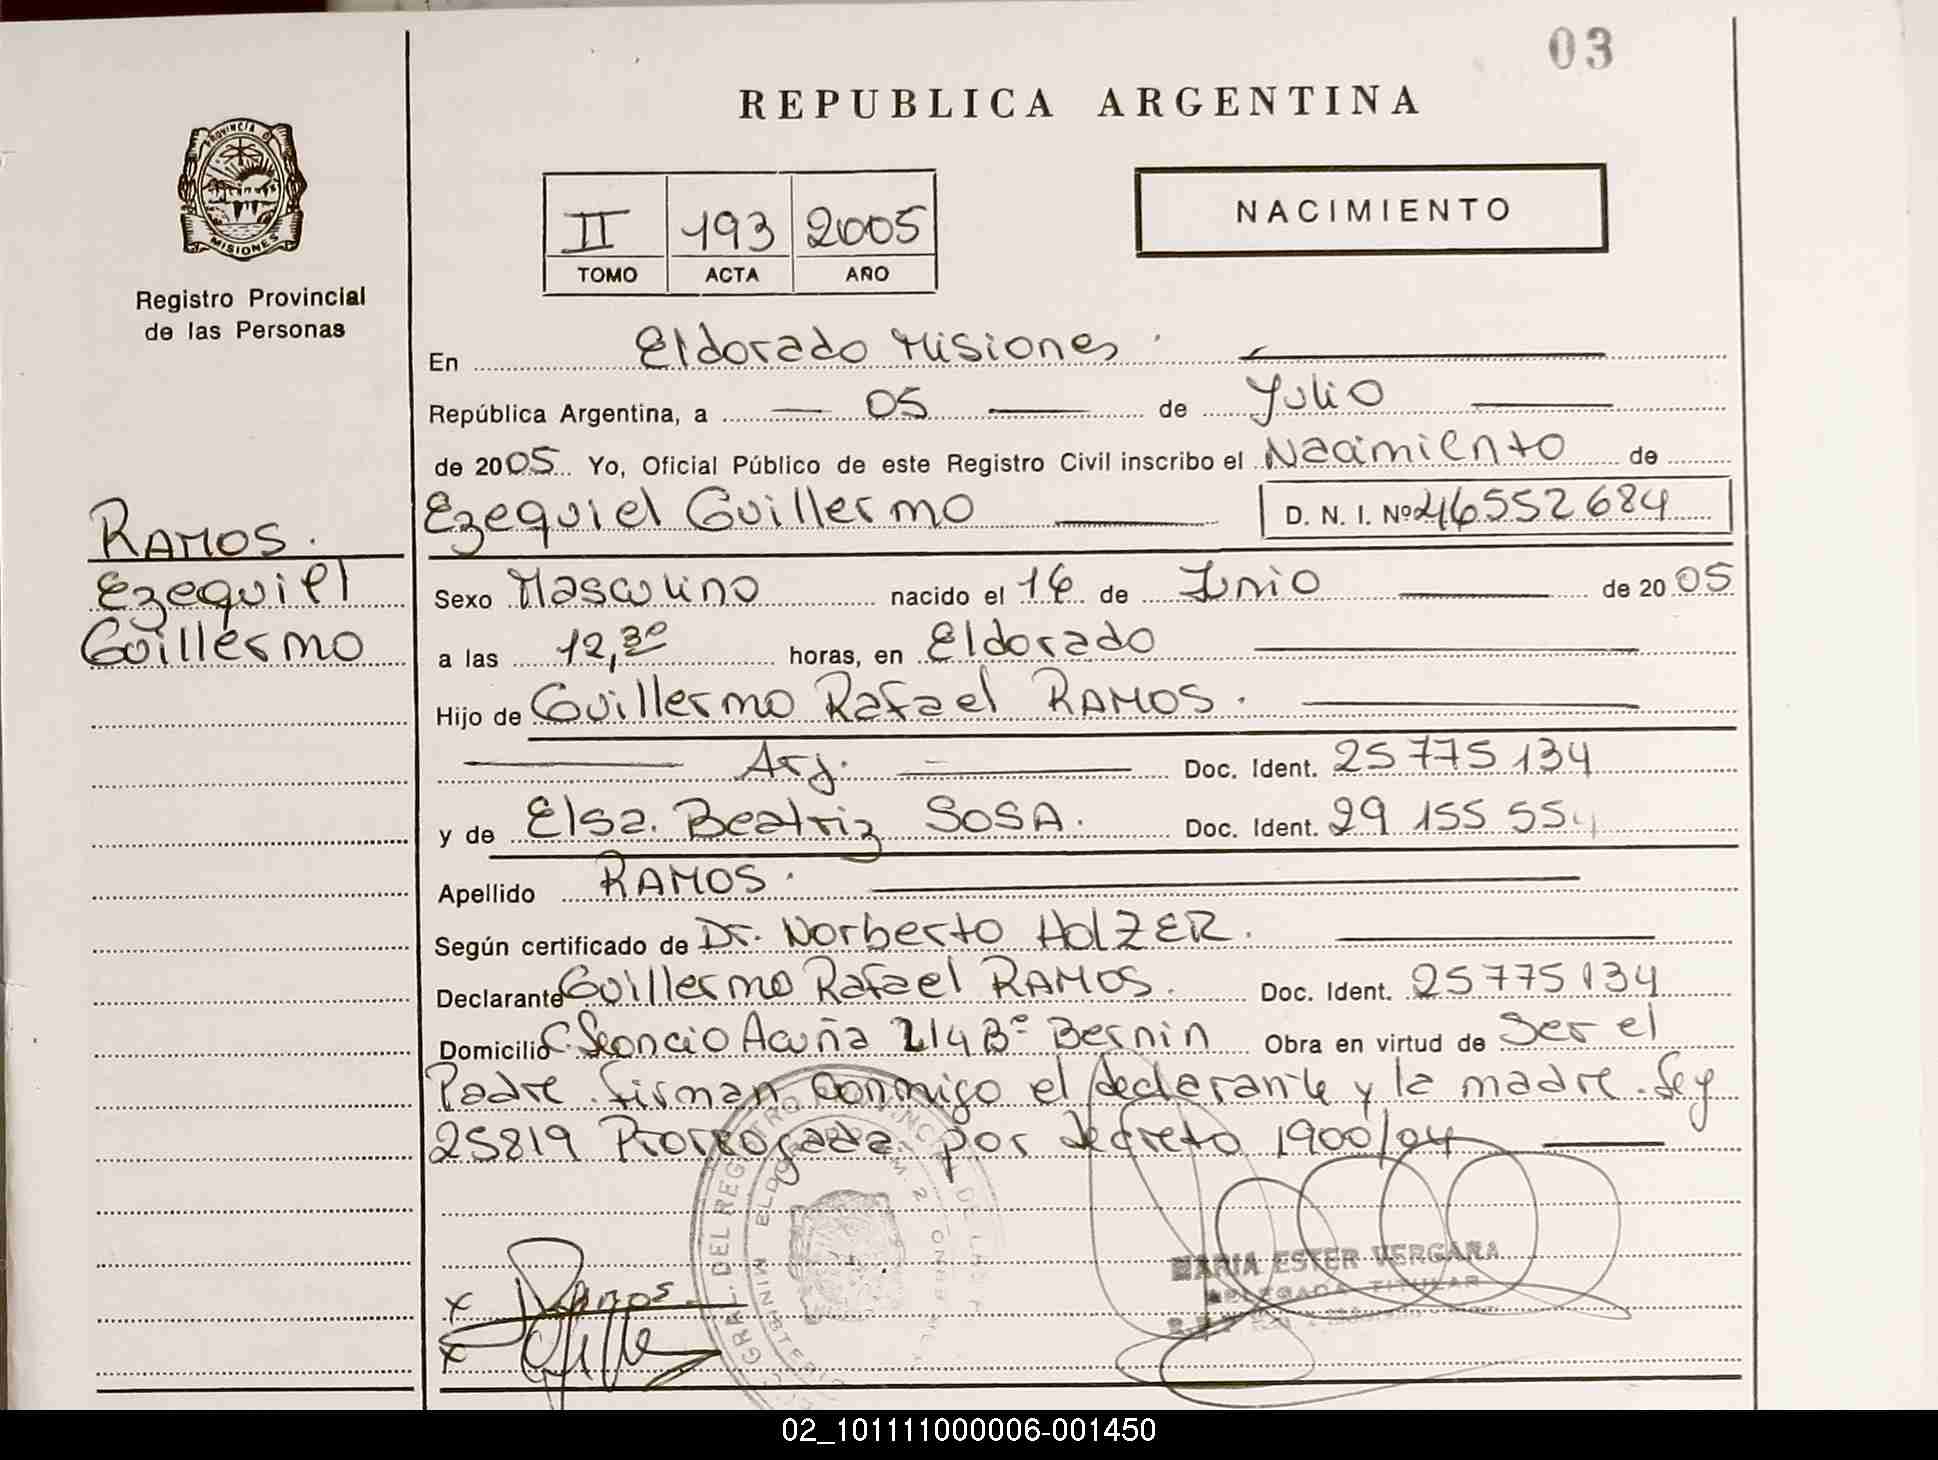 03
REPUBLICA ARGENTINA
PROVINCIA DE
MISIONES
Registro Provincial
de las Personas
II 193 2005
TOMO ACTA AÑO
NACIMIENTO
En Eldorado Misiones
República Argentina, a 05 de Julio
de 2005 Yo, Oficial Público de este Registro Civil inscribo el Nacimiento de
RAMOS.
Ezequiel
Guillermo
Ezequiel Guillermo D. N. I. Nº 46552684
Sexo Masculino nacido el 16 de Junio de 2005
a las 12,30 horas, en Eldorado
Hijo de Guillermo Rafael RAMOS.
Arj. Doc. Ident. 25 775 134
y de Elsa Beatriz SOSA. Doc. Ident. 29 155 55
Apellido RAMOS.
Según certificado de Dr. Norberto HOLZER.
Declarante Guillermo Rafael RAMOS. Doc. Ident. 25775134
Domicilio C. Leoncio Acuña 214 Bº Bernin Obra en virtud de Ser el
Padre. firman conmigo el declarante y la madre. Ley
25819 Prorrogada por decreto 1900/04
MARIA ESTER VERGARA
DELEGADA TITULAR
x Ramos
x
02_101111000006-001450